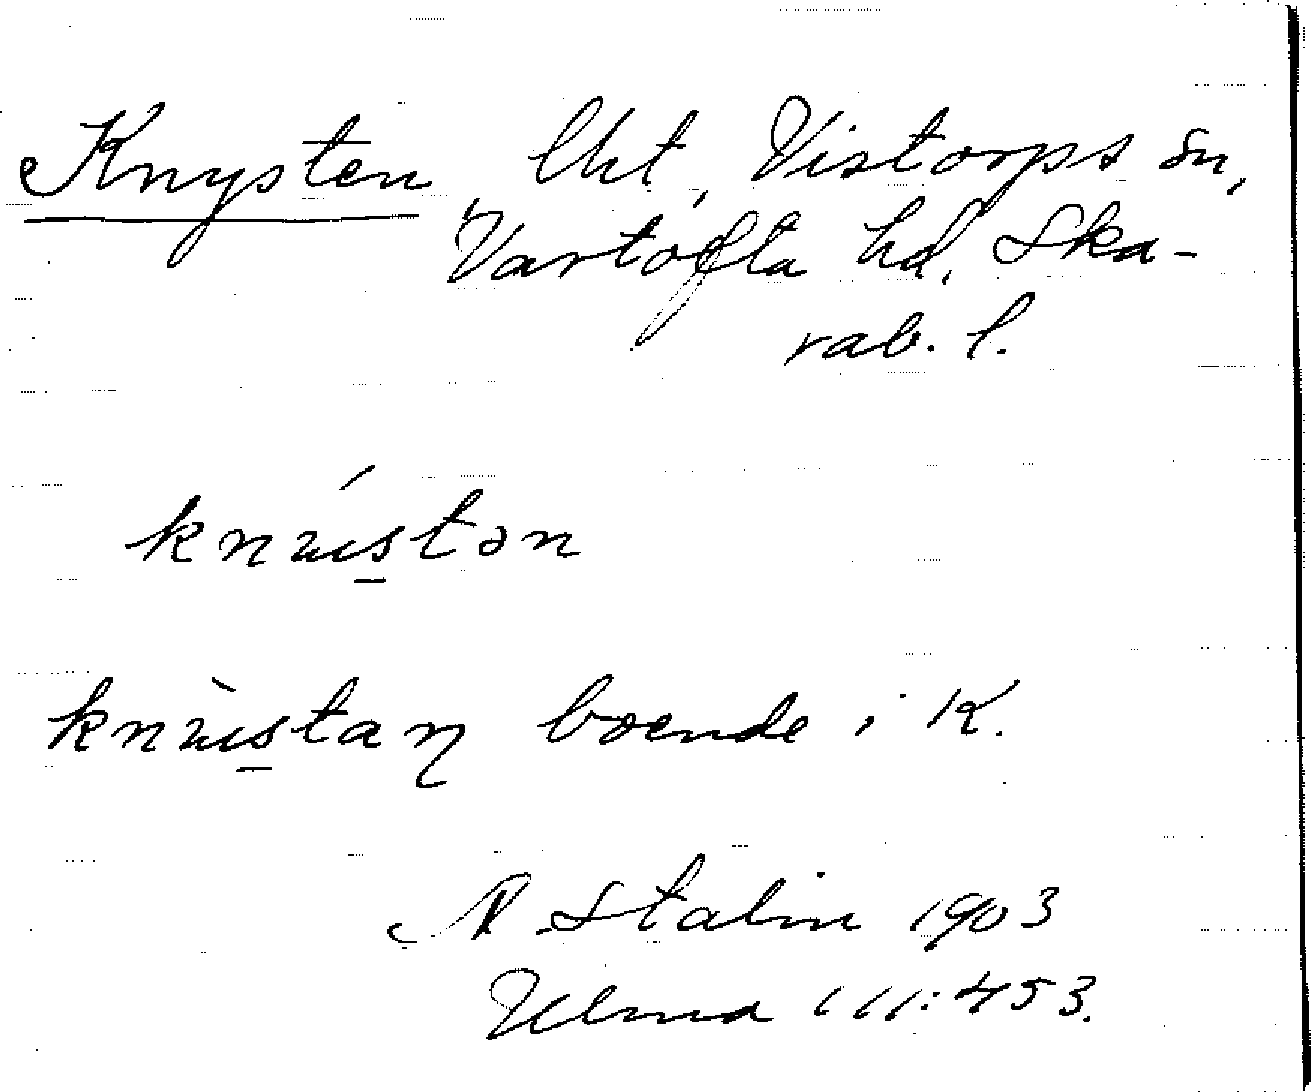 Knysten lht, Vistorps sn,
Vartofta hd, Ska-
rab. l.
knústən
knùstaɳ boende i K.
N Stalin 1903
Ulma 111:453.